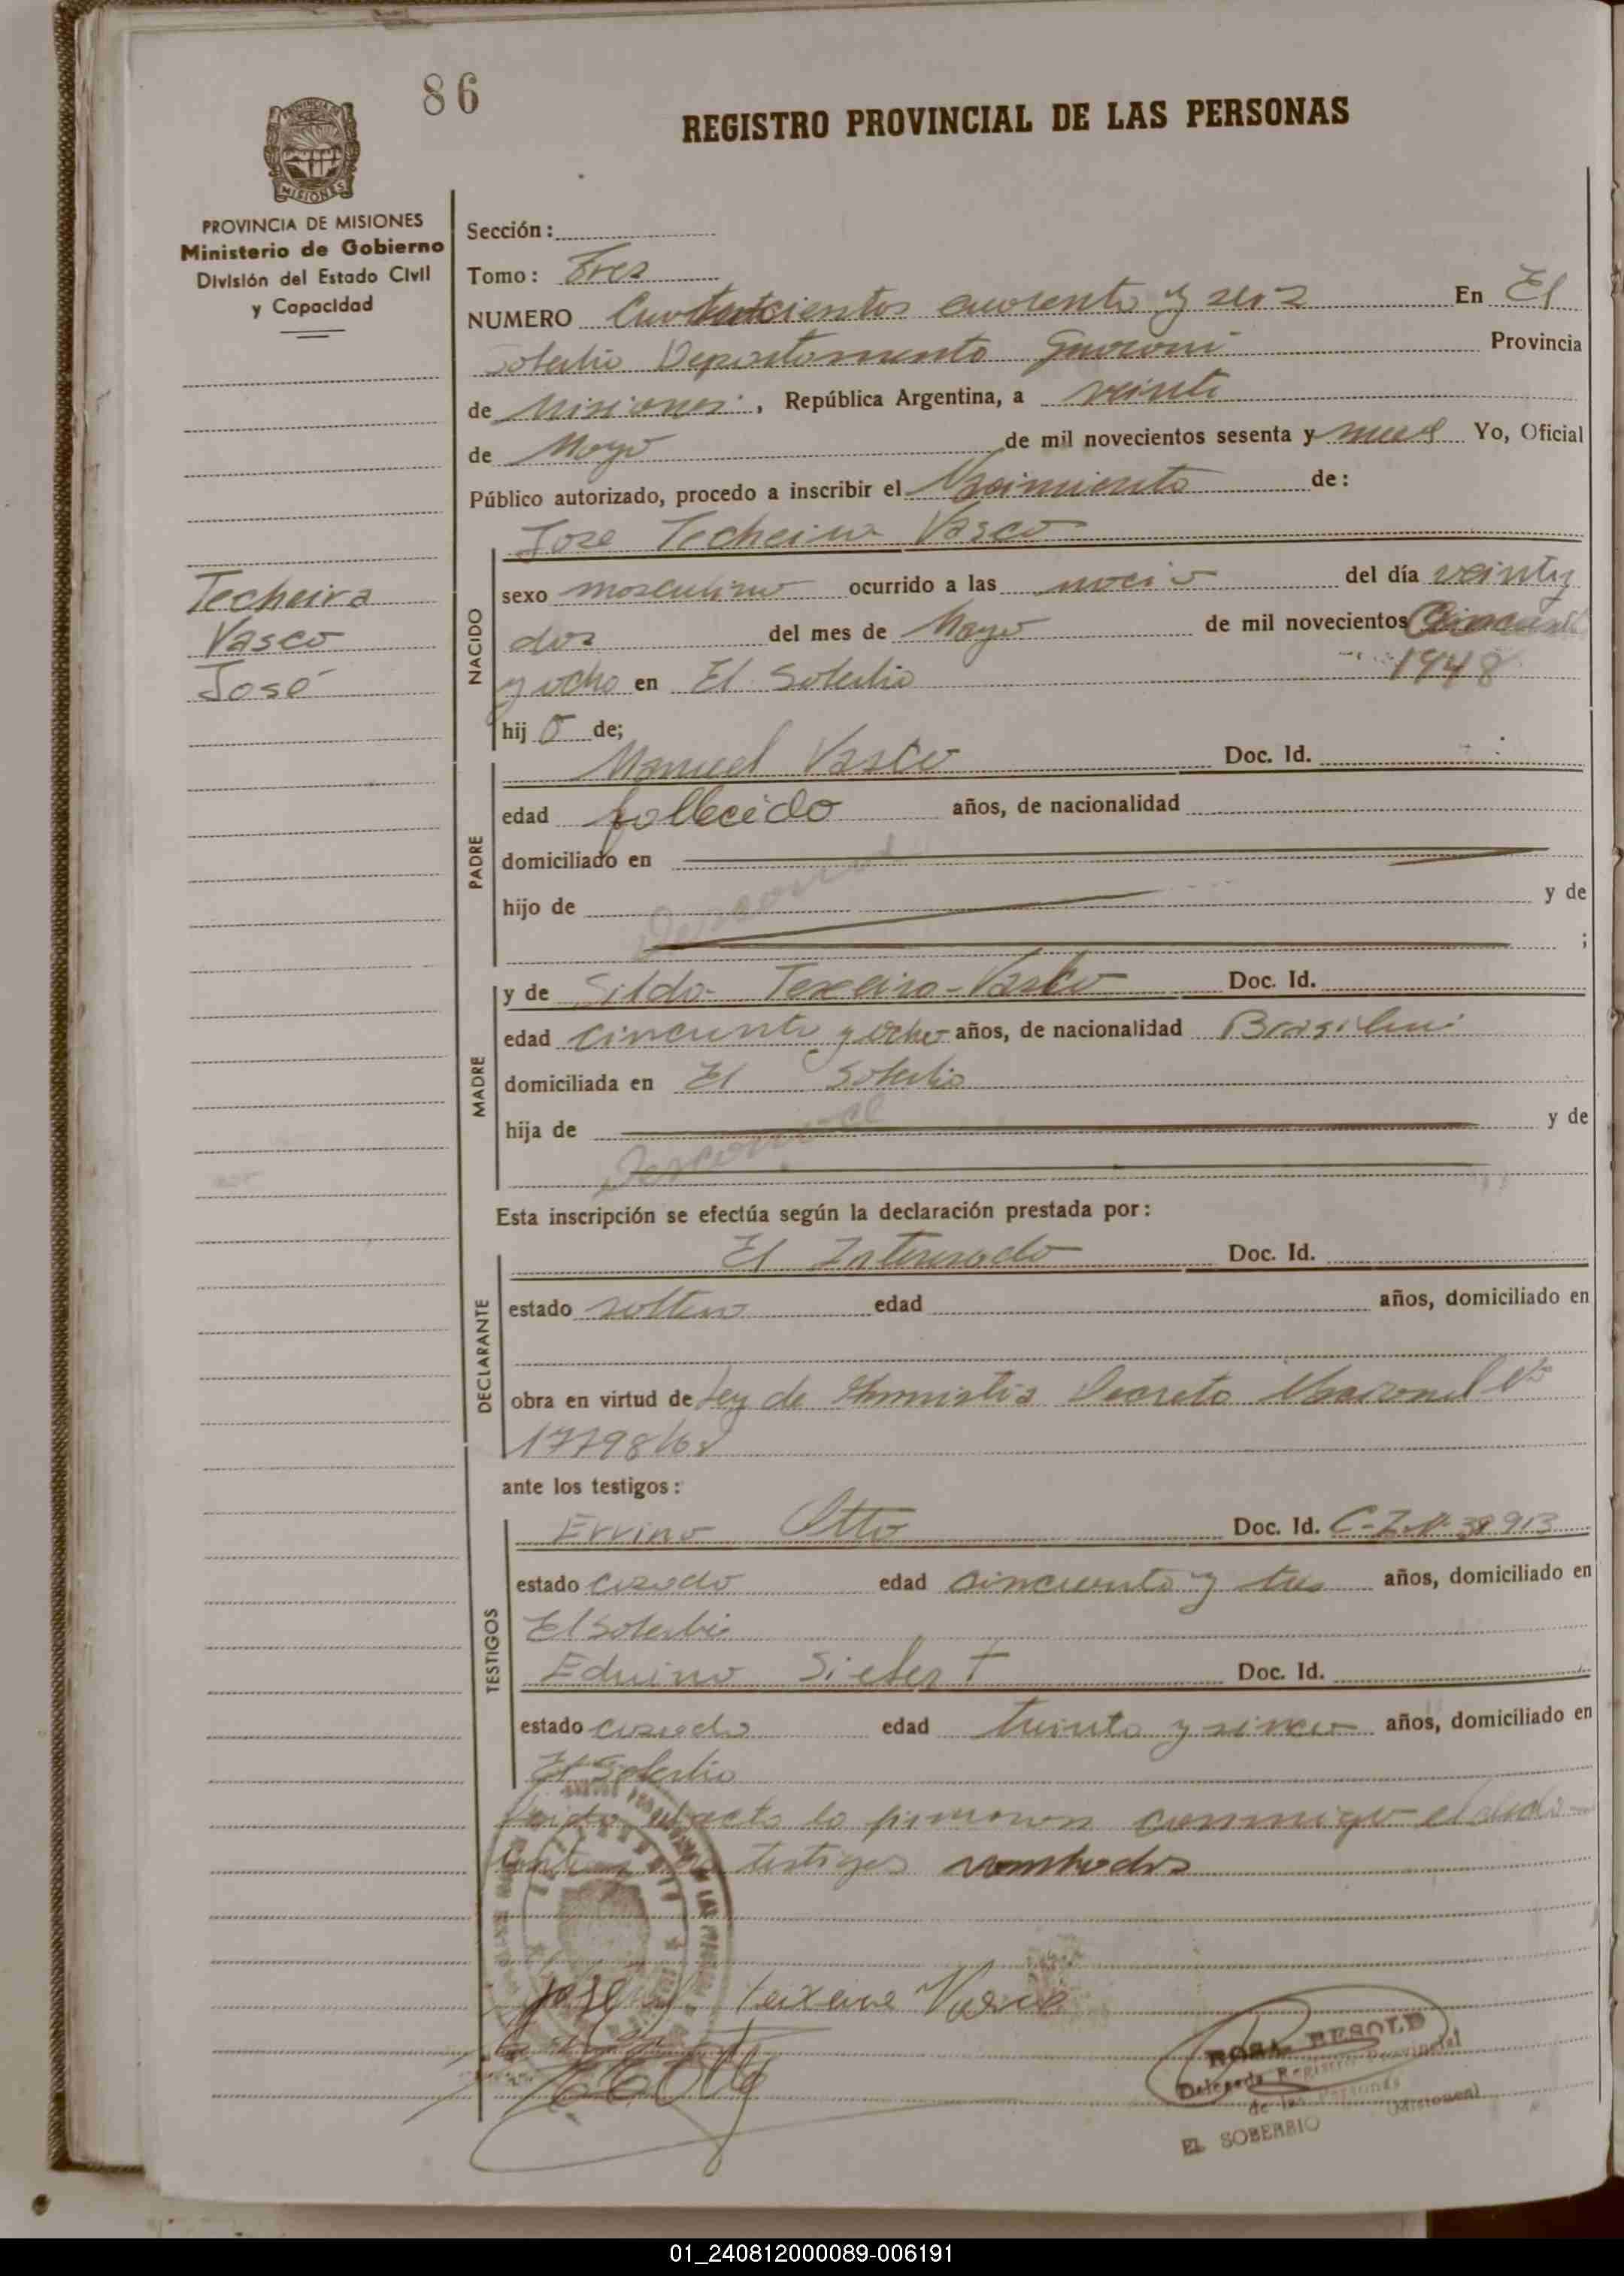 86
REGISTRO PROVINCIAL DE LAS PERSONAS
PROVINCIA DE MISIONES
Ministerio de Gobierno
División del Estado Civil
y Capacidad
Sección:
Tomo: Tres
NUMERO cuarenta y seis En El
Soberbio Departamento Guarani Provincia
de Misiones, República Argentina, a veinte
de Mayo de mil novecientos sesenta y Yo, Oficial
Público autorizado, procedo a inscribir el Nacimiento de:
Jose Techeira Vasco
Techeira
Vasco
José
NACIDO
sexo masculino ocurrido a las del día veinty
dos del mes de Mayo de mil novecientos
1948
y ocho en El Soberbio
hij o de;
PADRE
Manuel Vasco Doc. Id.
edad fallecido años, de nacionalidad
domiciliado en
hijo de y de
;
MADRE
y de Silda Texeira-Vasco Doc. Id.
edad cincuenta y ocho años, de nacionalidad
domiciliada en El Soberbio
hija de y de
Esta inscripción se efectúa según la declaración prestada por:
DECLARANTE
El Interesado Doc. Id.
estado soltero edad años, domiciliado en
obra en virtud de Ley de Amnistia Decreto Nacional Nº
ante los testigos:
TESTIGOS
Ervino Otto Doc. Id.
estado casado edad cincuenta y tres años, domiciliado en
El Soberbio
Eduino Siebert Doc. Id.
estado casado edad treinta y sinco años, domiciliado en
El Soberbio
acta lo firmaron conmigo el
testigos nombrados
José Teixeira Vasco
ROSA BESOLD
Delegada Registro Provincial
de las Personas
EL SOBERBIO (Misiones)
01_240812000089-006191